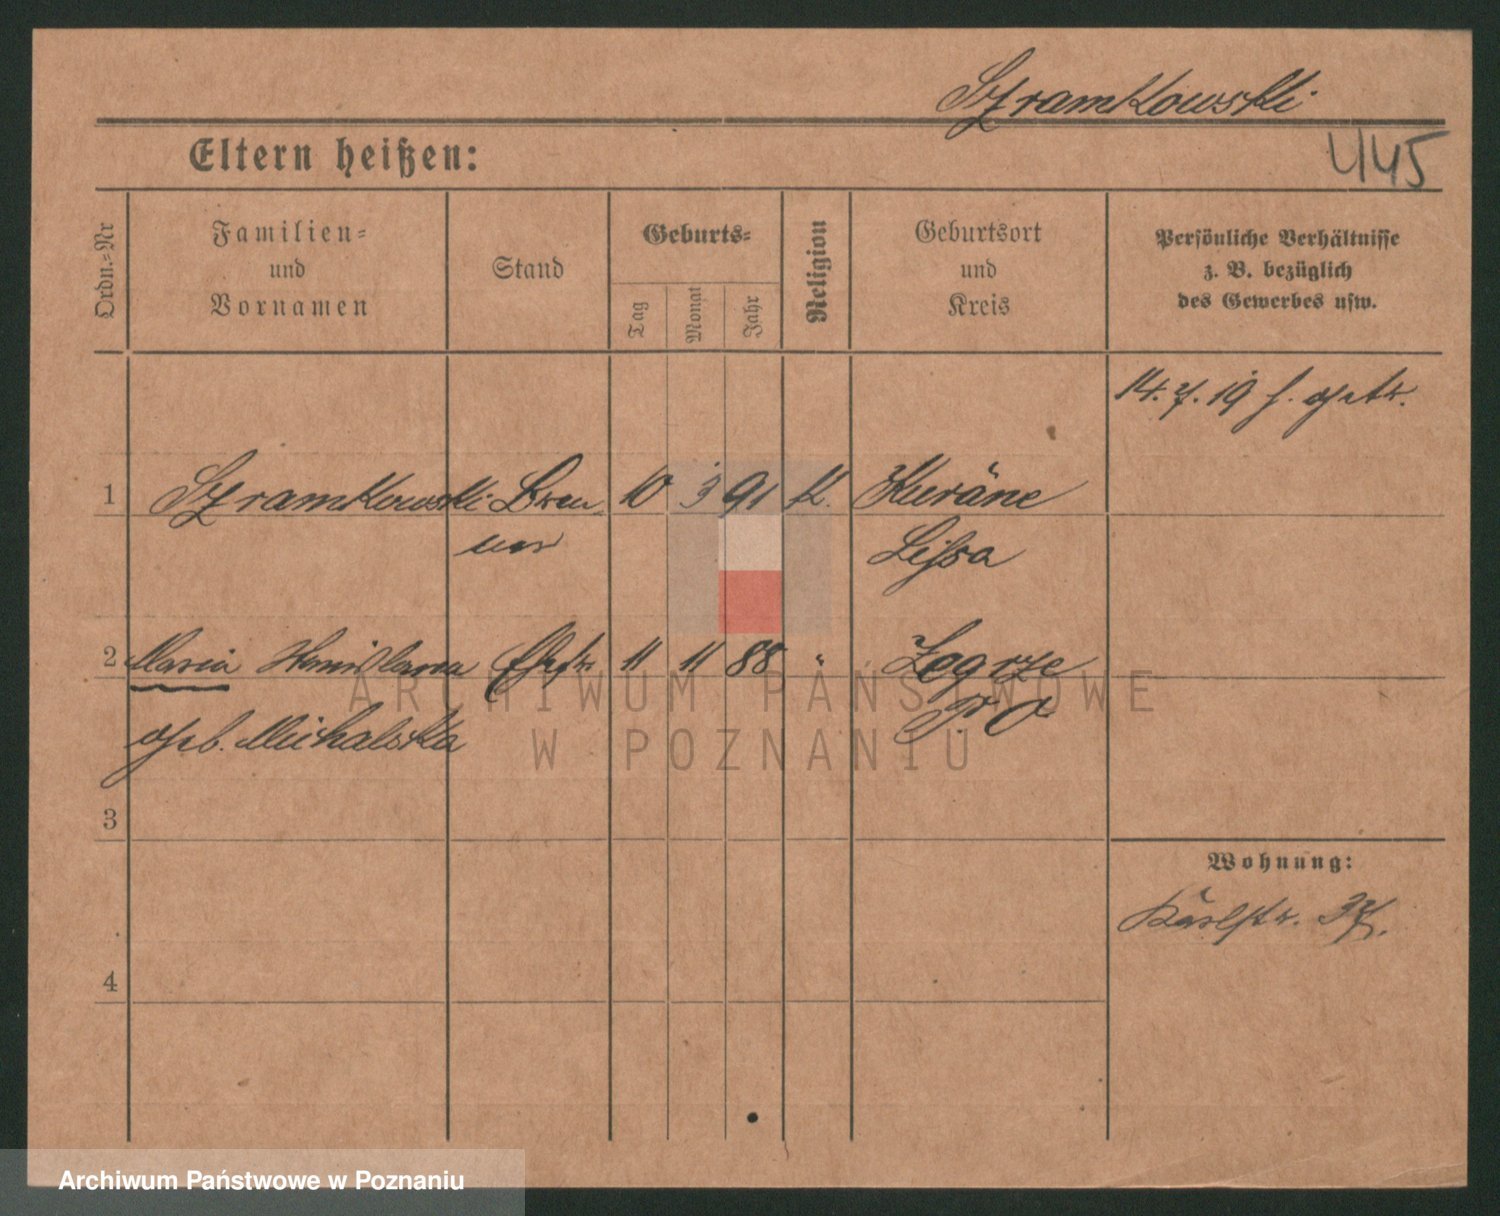 Szramkowski
445
Eltern heißen:
Ordn.-Nr
Familien-
und
Vornamen
Stand
Geburts-
Tag
Monat
Jahr
Religion
Geburtsort
und
Kreis
Persönliche Verhältnisse
z. B. bezüglich
des Gewerbes usw.
14. 7. 19
1 Szramkowski 10 3 91 K.
Lissa
2 Maria Stanislawa Ehefr. 11 11 88 " Zegrze
P. O
geb. Michalska
3
Wohnung:
Karlstr. 37.
4
ARCHIWUM PAŃSTWOWE
W POZNANIU
Archiwum Państwowe w Poznaniu